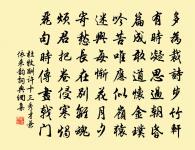 多為裁詩步竹軒
有時凝思過朝昏
篇成敢道懷金璞
吟苦唯應似嶺猿
迷興每慚花月夕
寄愁長在別離魂
煩君把卷侵寒燭
麗句時傳畫戟門
杜牧酬許十三秀才兼
依來韻詞典網集